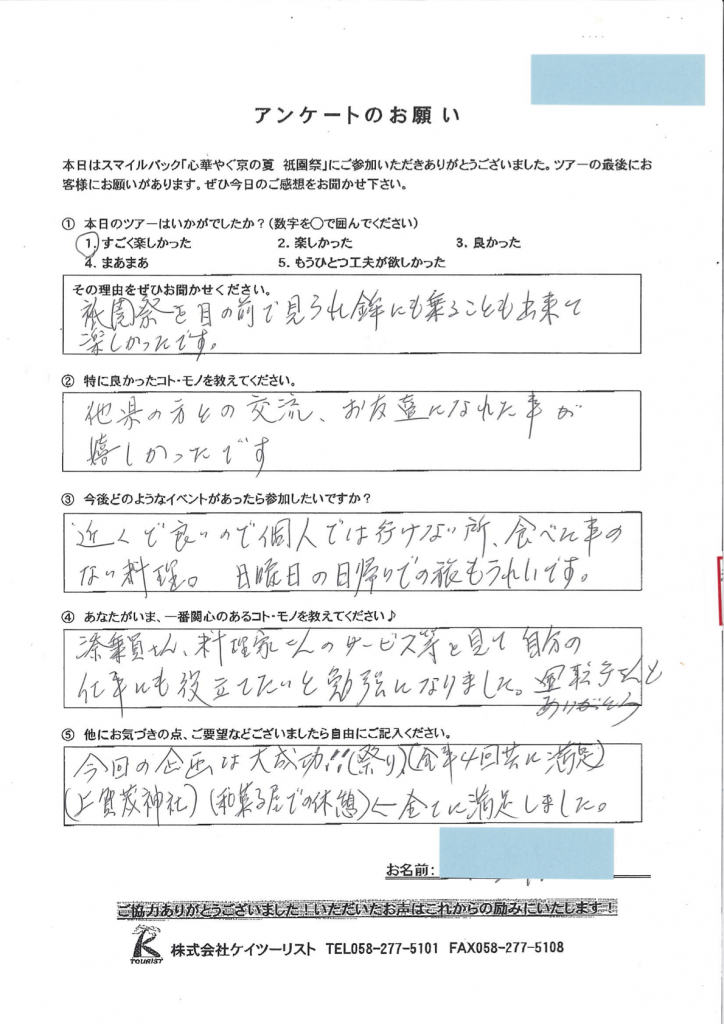 アンケートのお願い
本日はスマイルバック「心華やぐ京の夏 祇園祭」にご参加いただきありがとうございました。ツアーの最後にお
客様にお願いがあります。ぜひ今日のご感想をお聞かせ下さい。
① 本日のツアーはいかがでしたか？(数字を○で囲んでください)
1. すごく楽しかった 2. 楽しかった 3. 良かった
4. まあまあ 5. もうひとつ工夫が欲しかった
その理由をぜひお聞かせください。
祇園祭を目の前で見られ鉾にも乗ることも出来て
楽しかったです。
② 特に良かったコト・モノを教えてください。
他県の方との交流、お友達になれた事が
嬉しかったです
③ 今後どのようなイベントがあったら参加したいですか？
近くで良いので個人では行けない所、食べた事の
ない料理。 日曜日の日帰りでの旅もうれしいです。
④ あなたがいま、一番関心のあるコト・モノを教えてください♪
添乗員さん、料理家さんのサービス等を見て自分の
仕事にも役立てたいと勉強になりました。運転手さんも
ありがとう
⑤ 他にお気づきの点、ご要望などございましたら自由にご記入ください。
今回の企画は大成功!!(祭り)(食事4回共に満足)
(上賀茂神社)(和菓子屋での休憩)←全てに満足しました。
お名前:
ご協力ありがとうございました！いただいたお声はこれからの励みにいたします！
K TOURIST 株式会社ケイツーリスト TEL058-277-5101 FAX058-277-5108